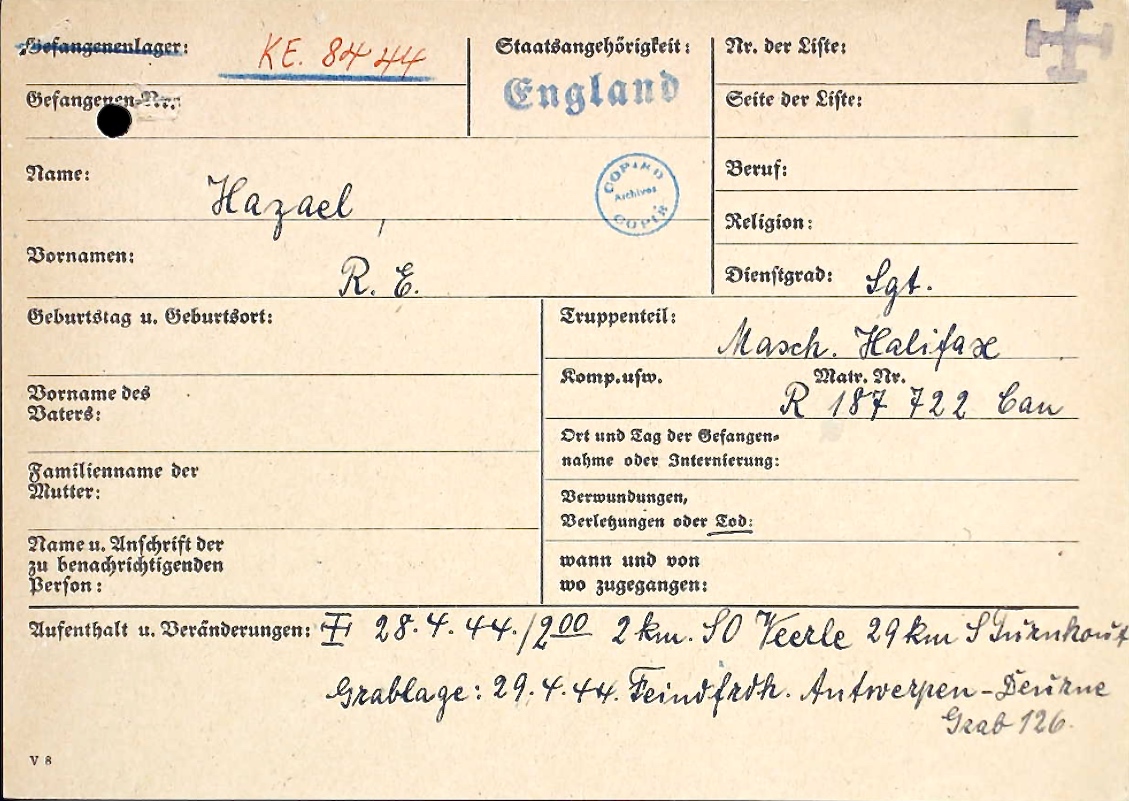 Gefangenenlager: KE. 8444
Staatsangehörigkeit:
England
Nr. der Liste:
Gefangenen-Nr.:
Seite der Liste:
Name: Hazael,
COPIED
Archives
COPIÉ
Beruf:
Religion:
Vornamen: R. E.
Dienstgrad: Sgt.
Geburtstag u. Geburtsort:
Truppenteil:
Masch. Halifax
Komp.usw. Matr. Nr.
R 187 722 Can
Vorname des
Vaters:
Ort und Tag der Gefangen-
nahme oder Internierung:
Familienname der
Mutter:
Verwundungen,
Verletzungen oder Tod:
Name u. Anschrift der
zu benachrichtigenden
Person:
wann und von
wo zugegangen:
Aufenthalt u. Veränderungen: 28.4.44./2 00 2 km. SO Veerle 29 km S Turnhout
Grablage: 29.4.44. Feindfrdh. Antwerpen-Deurne
Grab 126.
V 8